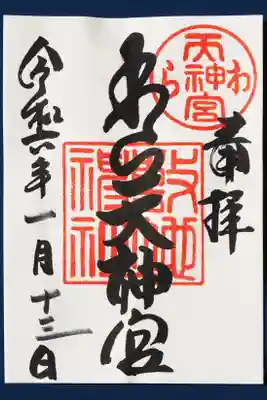 奉拝
わら天神宮
わら天神宮
敷地神社
令和六年一月十三日